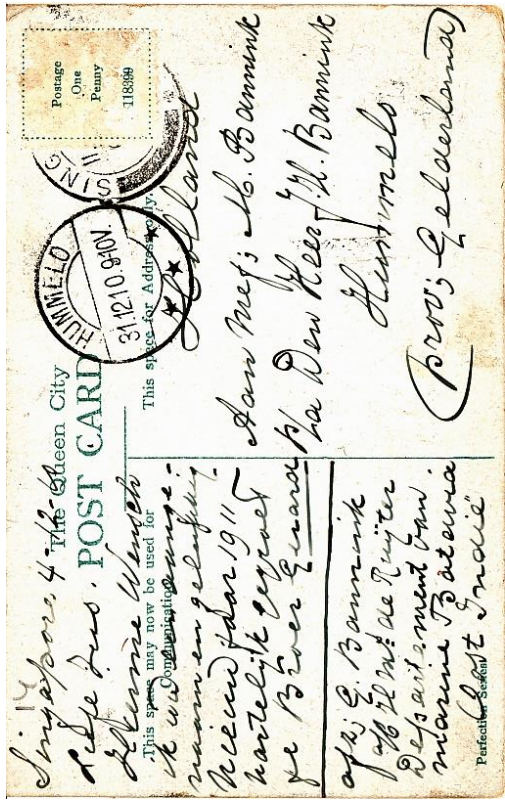 The Queen City
POST CARD
This space may now be used for
Communication.
This space for Address only.
Postage
One
Penny
118399
SING
HUMMELO
31.12.10. 9-10V.
Singapore 4-12-
Liefe Zus.
Hiermee Wensch
ik uw een aange-
naam en gelukkig
Nieuw Jaar 1911
hartelijk gegroet
je Broer Gerard
afz; G. Bannink
a/b H.M. de Ruijter
Departement van
marine Batavia
Oost Indië
Holland
Aan Mej; M. Bannink
p/a Den Heer J.H. Bannink
Hummelo
(prov; Gelderland)
Perfection Series